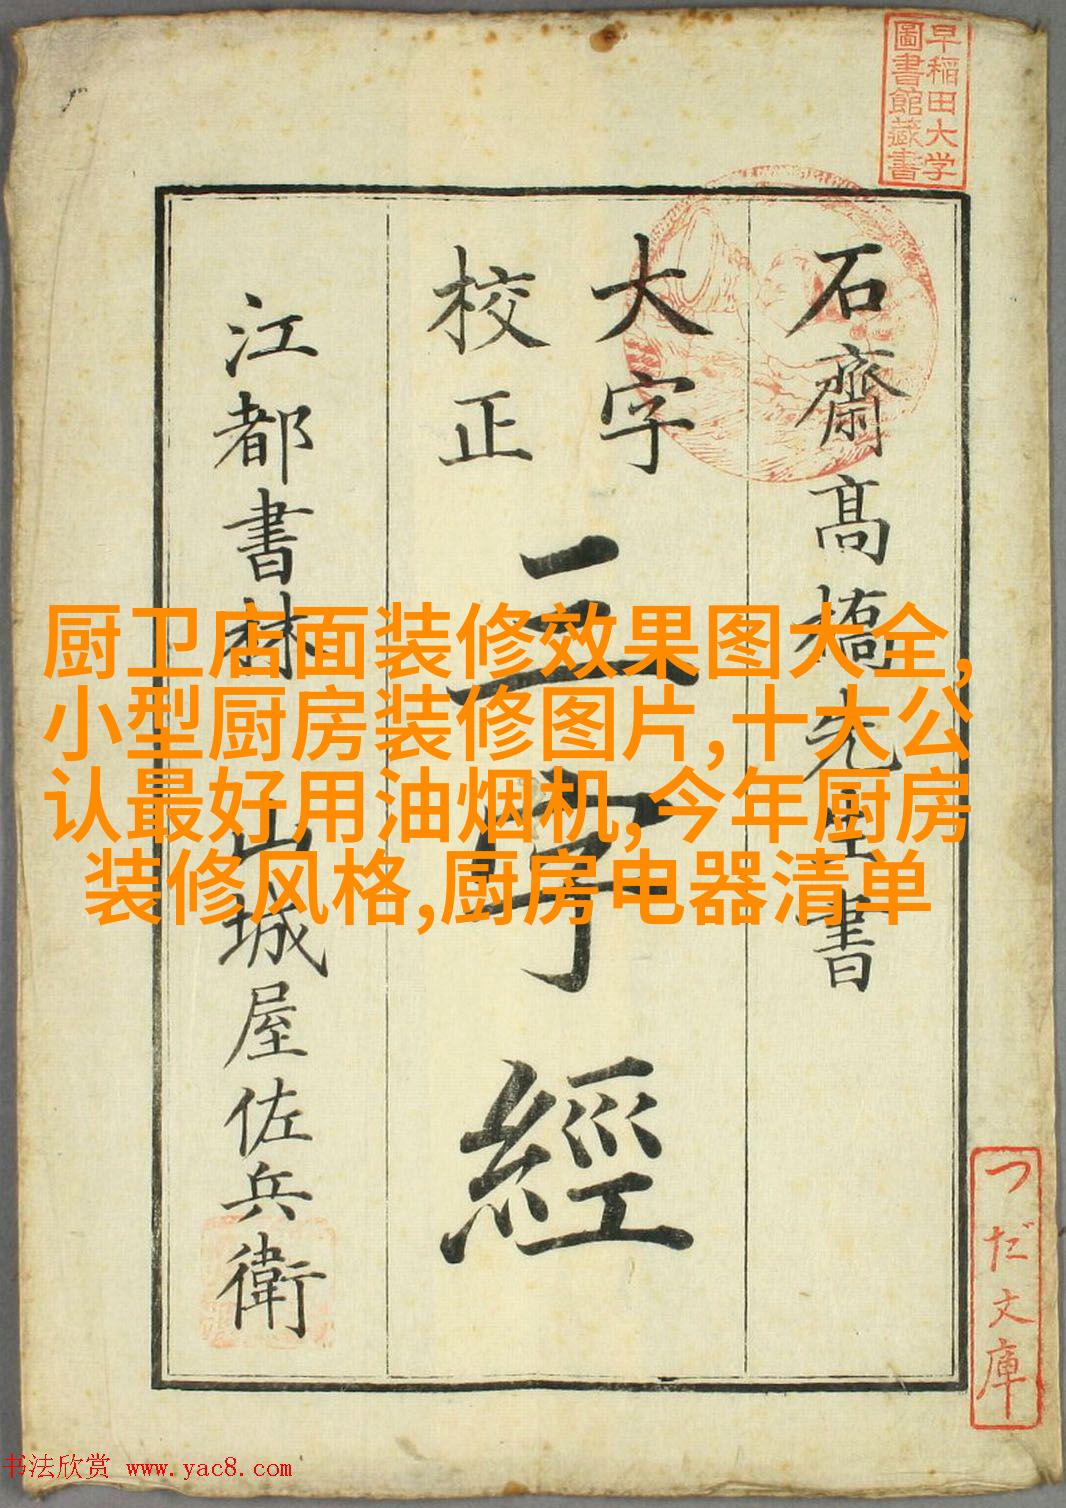 早稲田大学
圖書館藏書
石齋髙橋先生書
大字
校正
三字經
江都書林
山城屋佐兵衛
厨卫店面装修效果图大全,
小型厨房装修图片,十大公
认最好用油烟机,今年厨房
装修风格,厨房电器清单
つだ文庫
书法欣赏 www.yac8.com